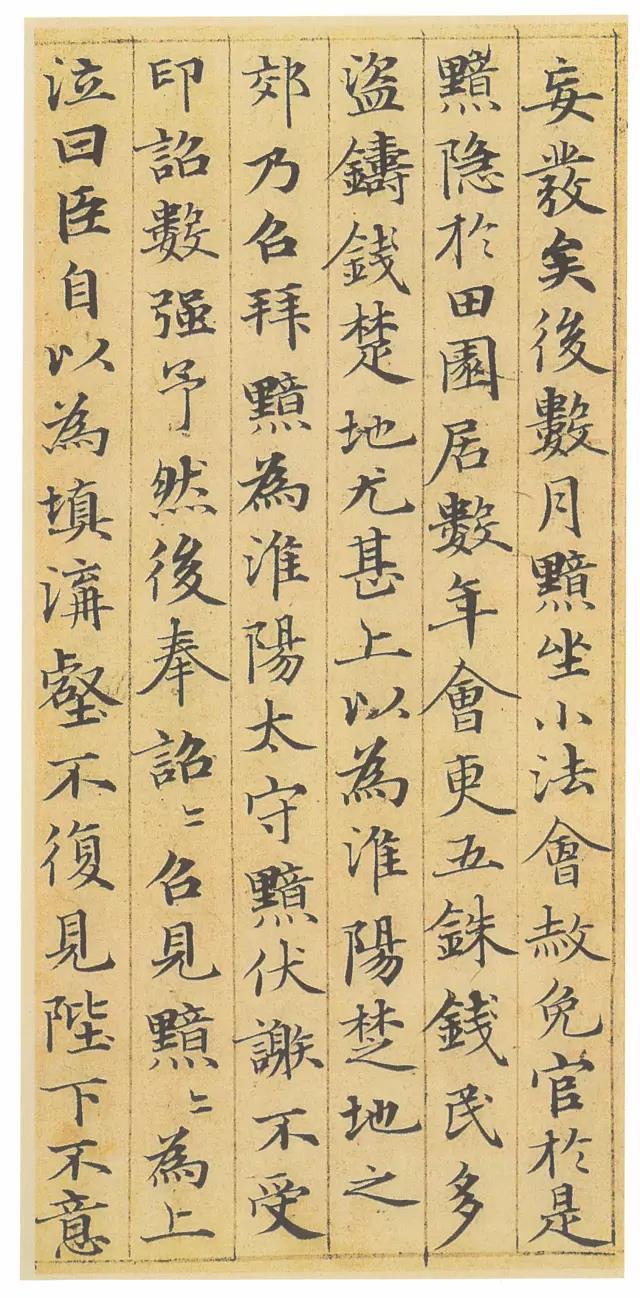 妄發矣後數月黯坐小法會赦免官於是
黯隱於田園居數年會更五銖錢民多
盜鑄錢楚地尤甚上以為淮陽楚地之
郊乃召拜黯為淮陽太守黯伏謝不受
印詔數强予然後奉詔〻召見黯〻為上
泣曰臣自以為填溝壑不復見陛下不意